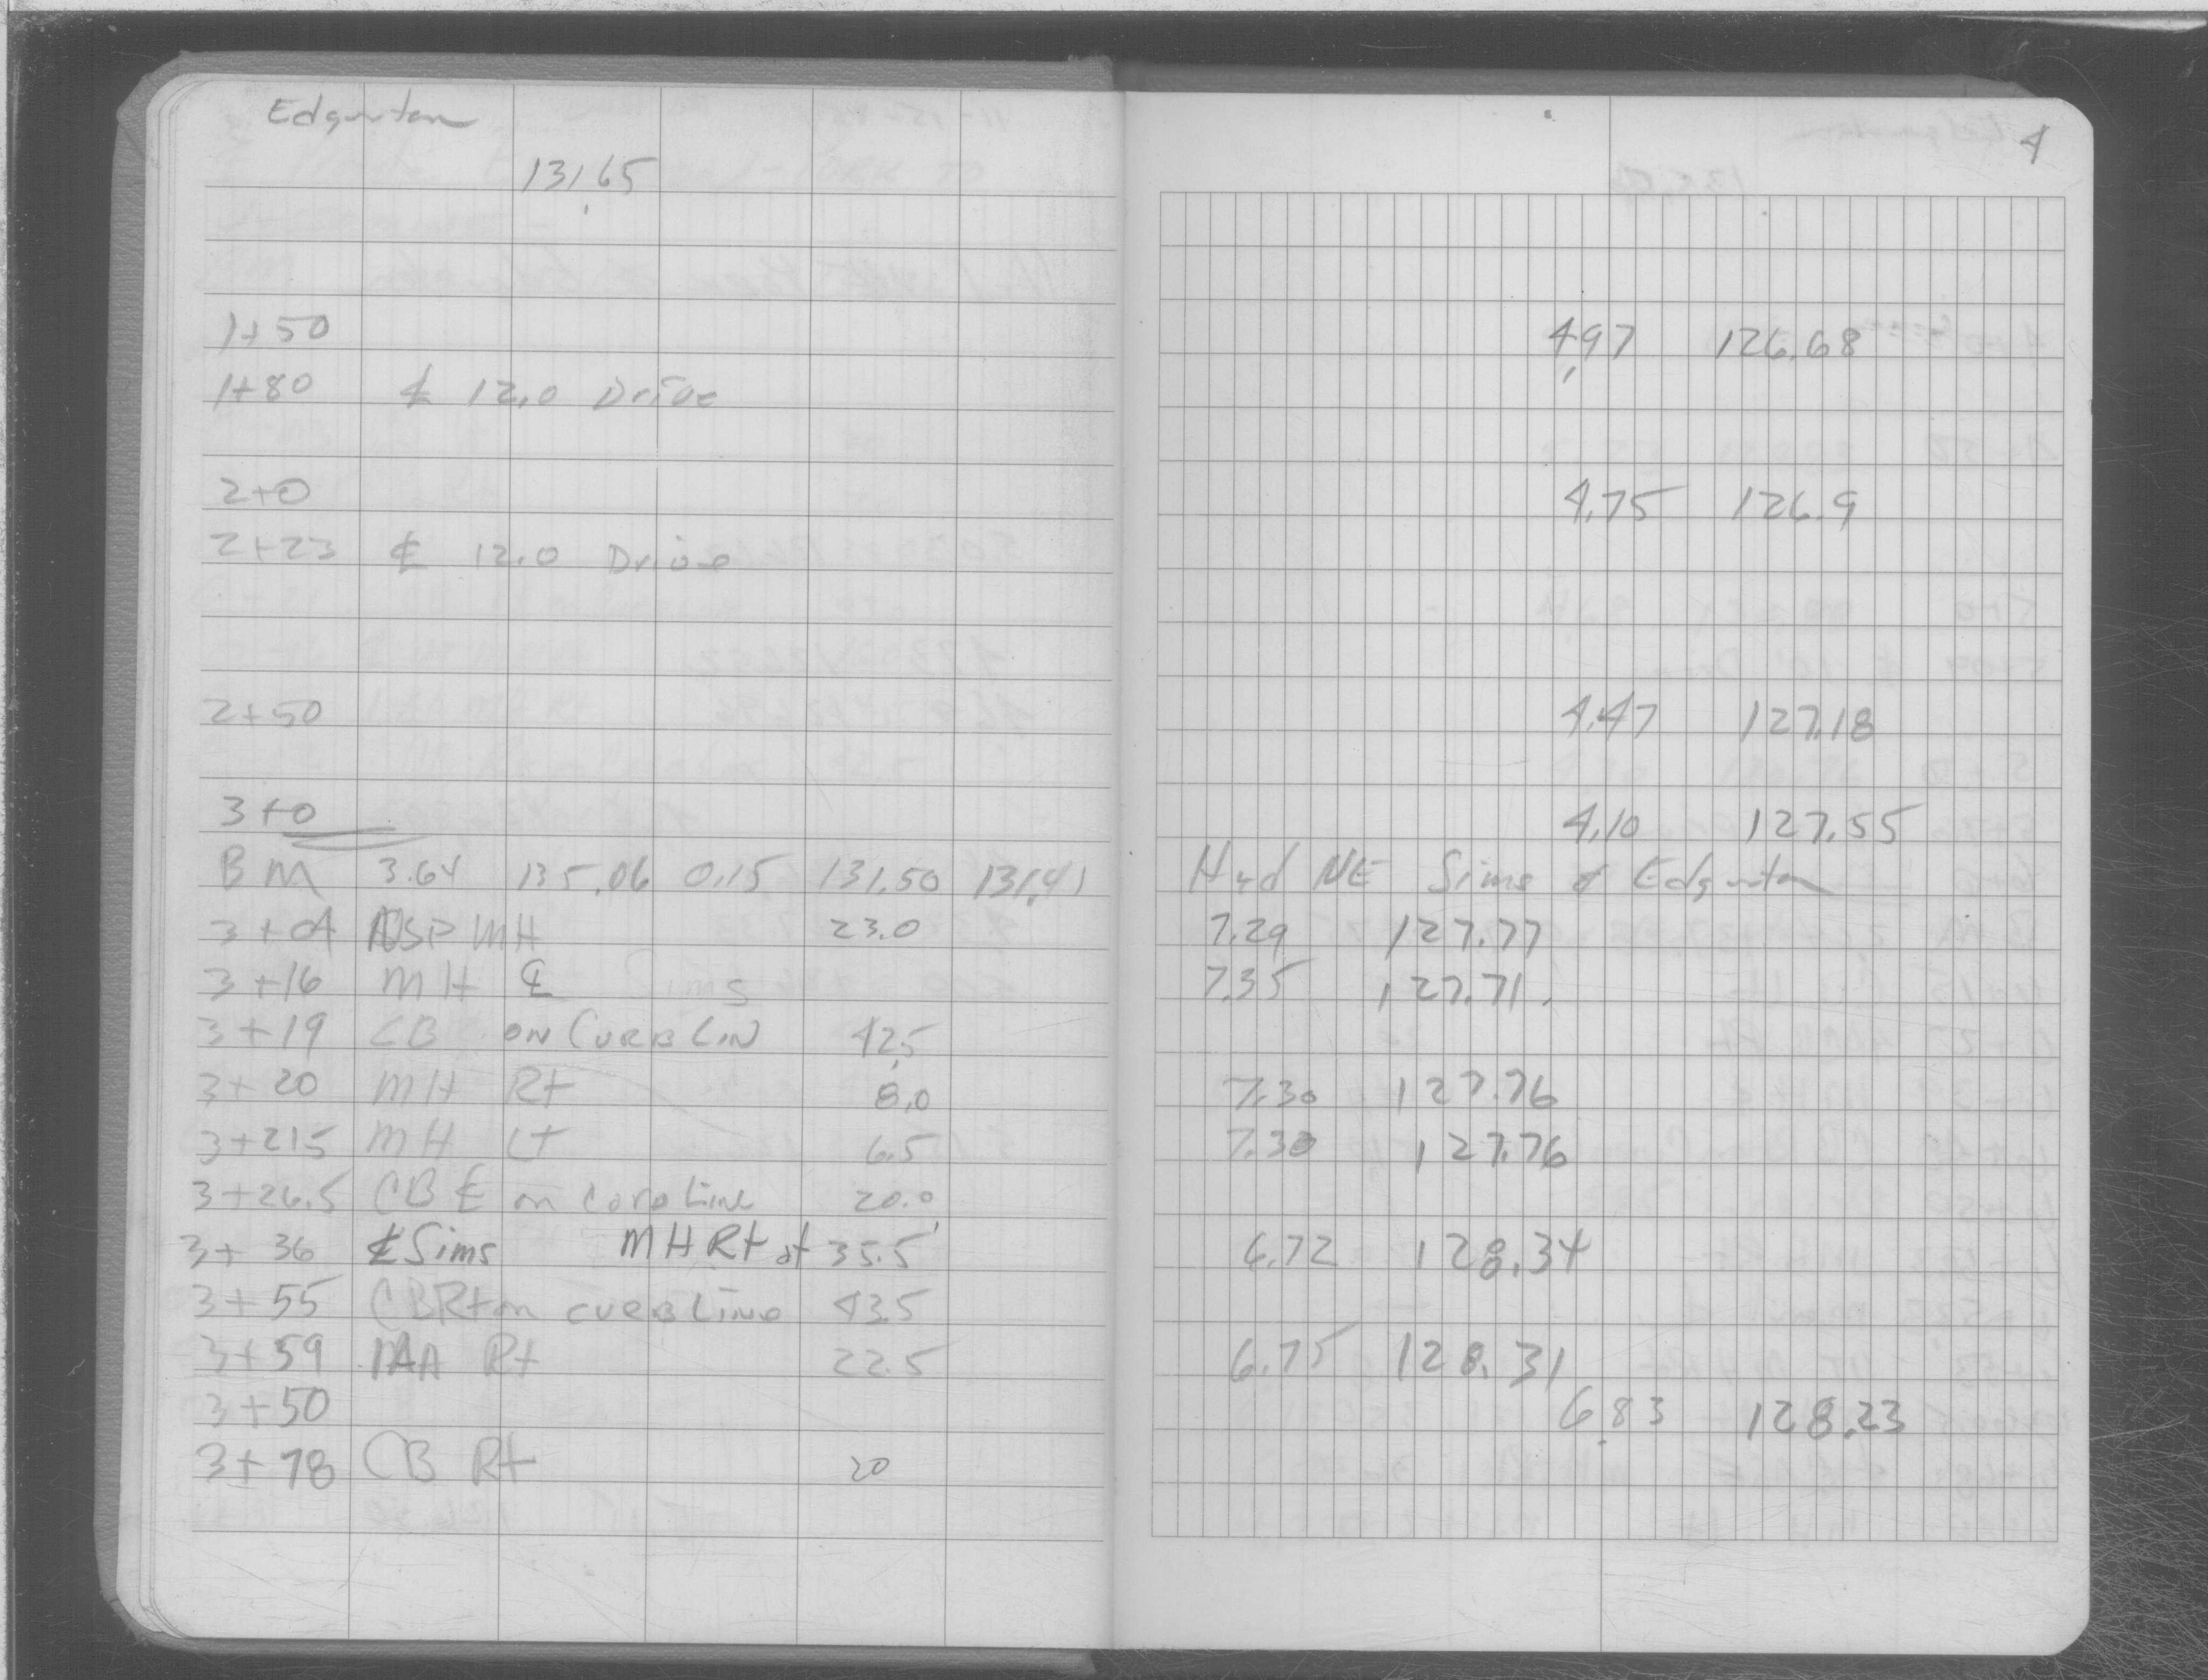 Edgerton
4
131.65
1+50 4.97 126.68
1+80 ℄ 12.0 Drive
2+0 4.75 126.9
2+23 ℄ 12.0 Drive
2+50 4.47 127.18
3+0 4.10 127.55
BM 3.64 135.06 0.15 131.50 131.41 Hyd NE Sims & Edgerton
3+04 NSP MH 23.0 7.29 127.77
3+16 MH ℄ 7.35 127.71
3+19 CB on Curb Lin 42.5
3+20 MH Rt 8.0 7.30 127.76
3+215 MH Lt 6.5 7.30 127.76
3+26.5 CB on Line 20.0
3+36 ℄ Sims MH Rt at 35.5' 6.72 128.34
3+55 CB Rt on curb Line 43.5
3+59 Rt 22.5 6.75 128.31
3+50 6.83 128.23
3+78 CB Rt 20